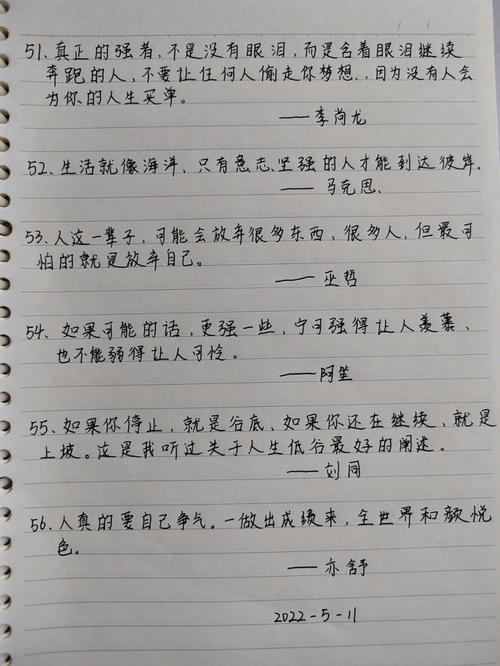 51、真正的强者，不是没有眼泪，而是含着眼泪继续
奔跑的人，不要让任何人偷走你梦想，因为没有人会
为你的人生买单。
——李尚龙
52、生活就像海洋，只有意志、坚强的人才能到达彼岸。
——马克思、
53、人这一辈子，可能会放弃很多东西，很多人，但最可
怕的就是放弃自己。
——巫哲
54、如果可能的话，更强一些，宁可强得让人羡慕，
也不能弱得让人可怜。
——阿笙
55、如果你停止，就是谷底，如果你还在继续，就是
上坡。这是我听过关于人生低谷最好的阐述。
——刘同
56、人真的要自己争气。一做出成绩来，全世界和颜悦
色。
——亦舒
2022-5-11